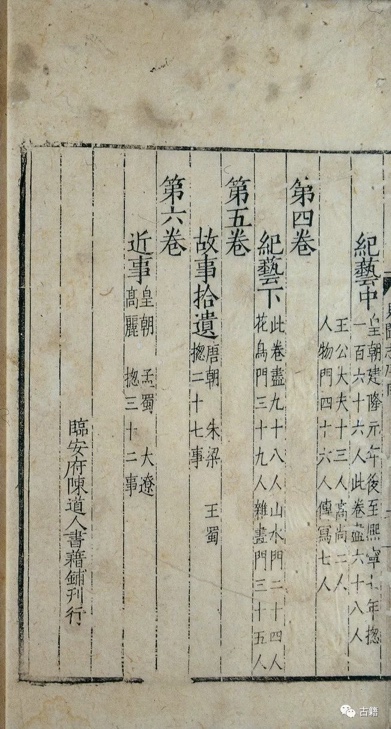 紀藝中
皇朝建隆元年後至熙寧七年揔
一百六十六人此卷盡六十八人
王公大夫十三人高尚二人
人物門四十六人傳寫七人
第四卷
紀藝下
此卷盡九十八人山水門二十四人
花鳥門三十九人雜畫門三十五人
第五卷
故事拾遺
唐朝 朱梁 王蜀
揔二十七事
第六卷
近事
皇朝 孟蜀 大遼
高麗 揔三十二事
臨安府陳道人書籍鋪刊行
古籍